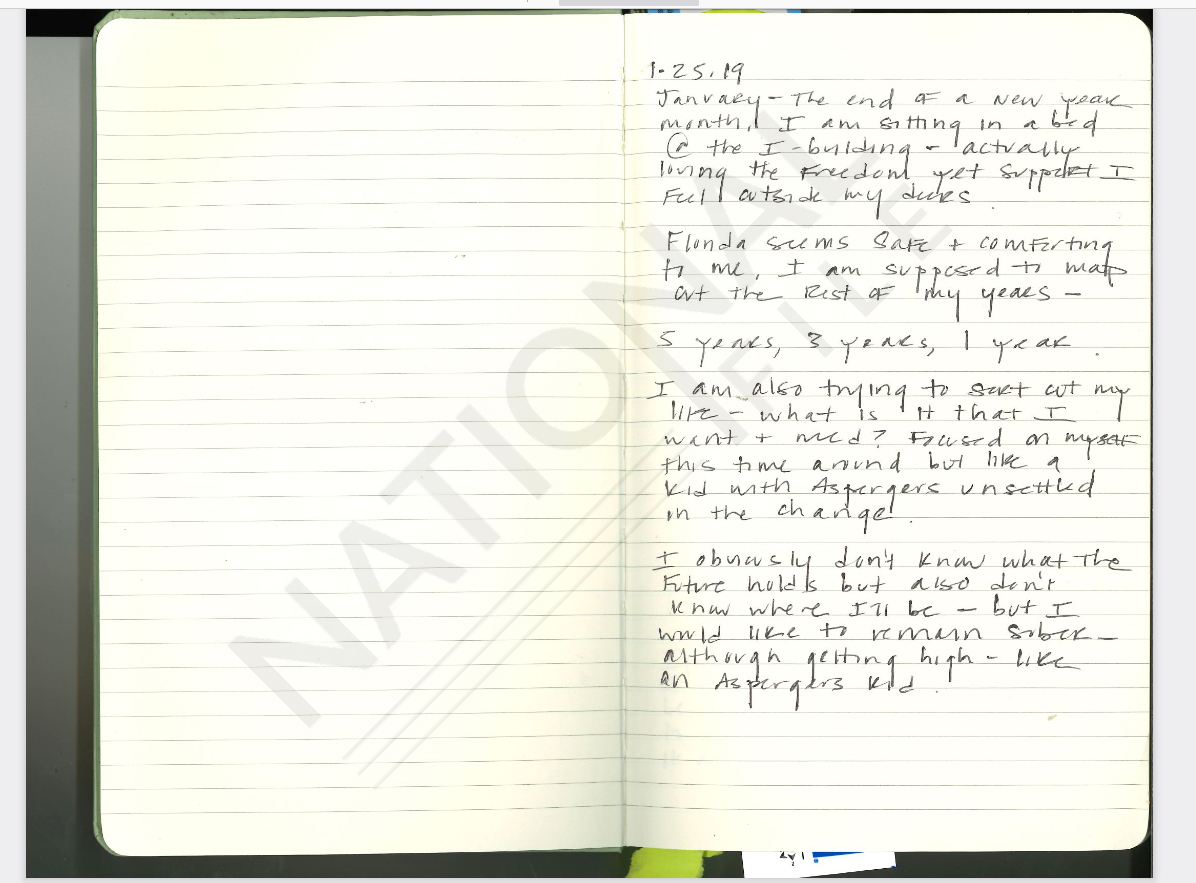 1-25.19
January - The end of a new year
month, I am sitting in a bed
@ the I-building - actually
loving the Freedom yet support I
Feel outside my doors.
Florida seems Safe + comforting
to me, I am supposed to map
out the Rest of my years -
5 years, 3 years, 1 year.
I am also trying to sort out my
life - what is it that I
want + need? Focused on myself
this time around but like a
kid with Aspergers unsettled
in the change.
I obviously don't know what the
Future holds but also don't
know where I'll be - but I
would like to remain sober -
although getting high - like
an Aspergers kid.
NATIONAL
FILE